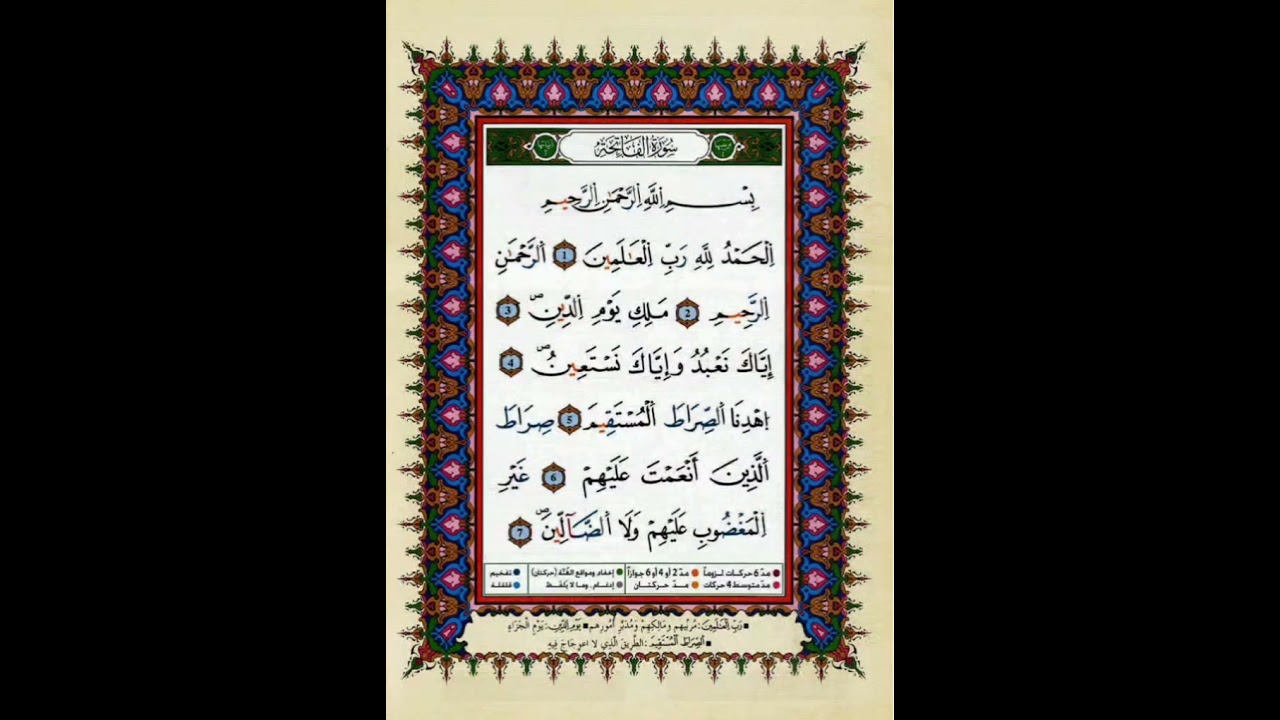 سُورَةُ الفَاتِحَةِ
بِسْمِ اِ۬للَّهِ اِ۬لرَّحْمَٰنِ اِ۬لرَّحِيمِ
اِ۬لْحَمْدُ لِلَّهِ رَبِّ اِ۬لْعَٰلَمِينَ 1 اَ۬لرَّحْمَٰنِ
اِ۬لرَّحِيمِ 2 مَلِكِ يَوْمِ اِ۬لدِّينِۖ 3
إِيَّاكَ نَعْبُدُ وَإِيَّاكَ نَسْتَعِينُۖ 4
اِ۪هْدِنَا اَ۬لصِّرَٰطَ اَ۬لْمُسْتَقِيمَ 5 صِرَٰطَ
اَ۬لَّذِينَ أَنْعَمْتَ عَلَيْهِمْ 6 غَيْرِ
اِ۬لْمَغْضُوبِ عَلَيْهِمْ وَلَا اَ۬لضَّآلِّينَۖ 7
مدّ 6 حركات لزوماً مدّ 2 أو 4 أو 6 جوازاً إخفاء ومواقع الغُنَّة (حركتان) تفخيم
مدّ متوسط 4 حركات مدّ حركتان إدغام، وما لا يُلفَظ قلقلة
رَبِّ اِ۬لْعَٰلَمِينَ: مُرَبِّيهِم وَمَالِكِهِمْ وَمُدَبِّرِ أُمُورِهِم يَوْمِ اِ۬لدِّينِ: يَوْمِ الْجَزَاءِ
اَ۬لصِّرَٰطَ اَ۬لْمُسْتَقِيمَ: الطَّرِيقَ الَّذِي لَا اعْوِجَاجَ فِيهِ